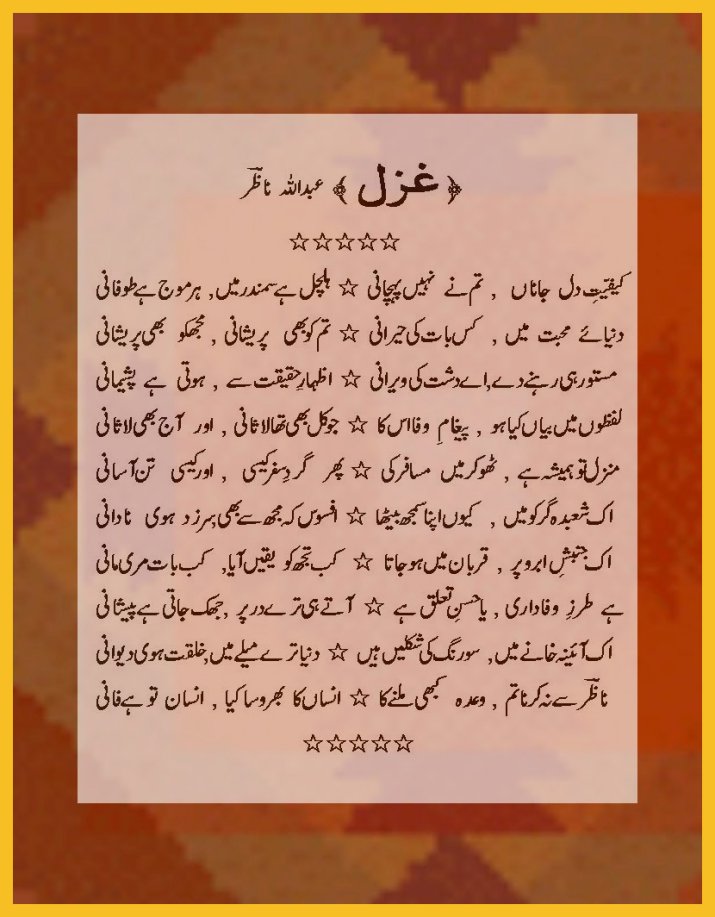 ﴿ غزل ﴾ عبداللہ ناظرؔ
☆☆☆☆☆
کیفیّتِ دل جاناں , تم نے نہیں پہچانی ☆ ہلچل ہے سمندر میں, ہر موج ہے طوفانی
دنیائے محبت میں , کس بات کی حیرانی ☆ تم کو بھی پریشانی , مجھکو بھی پریشانی
مستور ہی رہنے دے, اے دشت کی ویرانی ☆ اظہارِ حقیقت سے , ہوتی ہے پشیمانی
لفظوں میں بیاں کیا ہو , پیغامِ وفا اس کا ☆ جو کل بھی تھا لاثانی , اور آج بھی لاثانی
منزل تو ہمیشہ ہے , ٹھوکر میں مسافر کی ☆ پھر گردِ سفر کیسی , اور کیسی تن آسانی
اک شعبدہ گر کو میں , کیوں اپنا سمجھ بیٹھا ☆ افسوس کہ مجھ سے بھی, سرزد ہوی نادانی
اک جنبشِ ابرو پر , قربان میں ہو جاتا ☆ کب تجھ کو یقیں آیا, کب بات مری مانی
ہے طرزِ وفاداری , یا حسنِ تعلق ہے ☆ آتے ہی ترے در پر , جھک جاتی ہے پیشانی
اک آئنہ خانے میں, سو رنگ کی شکلیں ہیں ☆ دنیا ترے میلے میں, خلقت ہوی دیوانی
ناظرؔ سے نہ کرنا تم , وعدہ کبھی ملنے کا ☆ انساں کا بھروسا کیا , انسان تو ہے فانی
☆☆☆☆☆